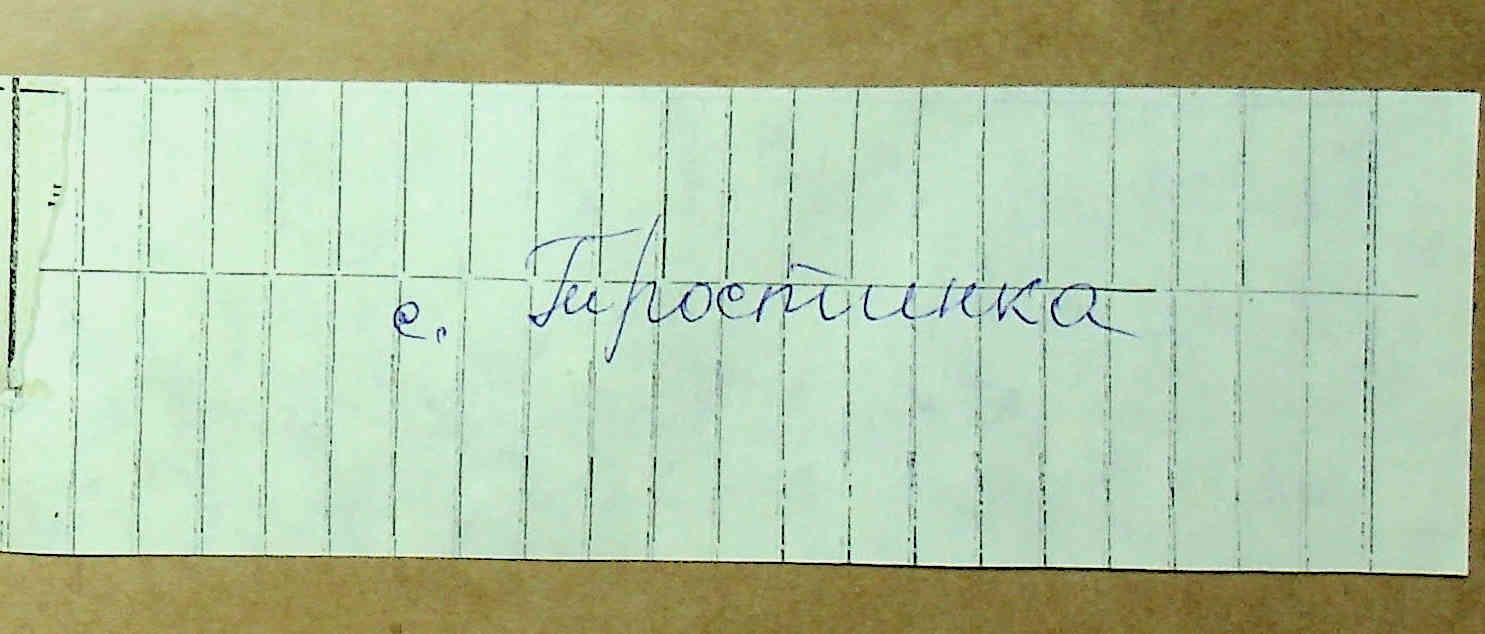 с. Тростинка